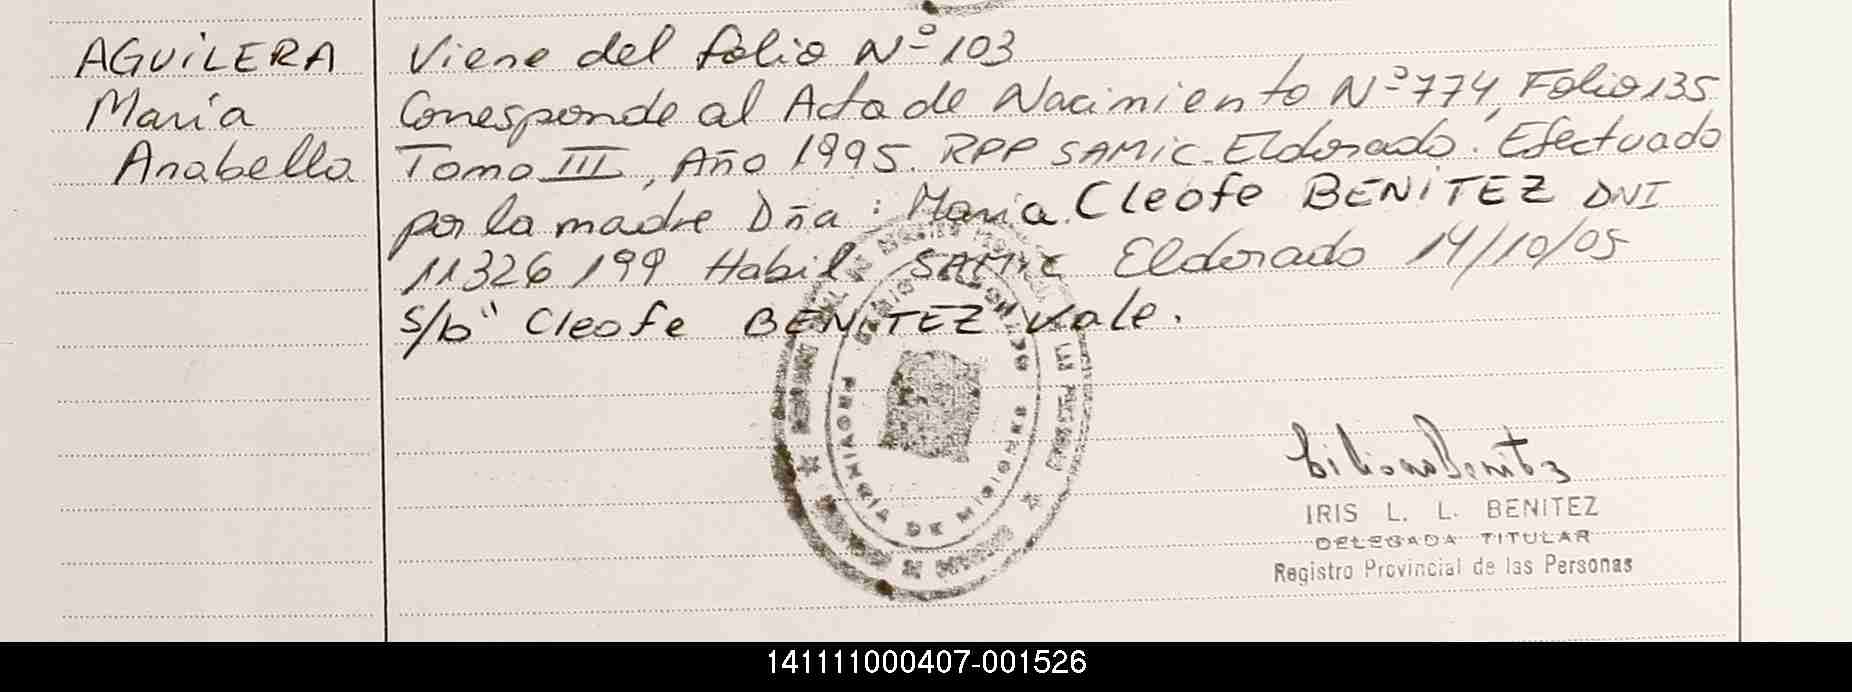 AGUILERA
María
Anabella
Viene del folio Nº 103
Corresponde al Acta de Nacimiento Nº 774, Folio 135
Tomo III, Año 1995. RPP SAMIC - Eldorado. Efectuado
por la madre Dña: María Cleofe BENITEZ DNI
11326199 Habil. SAMIC Eldorado 14/10/05
S/b "Cleofe BENITEZ" Vale.
PROVINCIA DE MISIONES
IRIS L. L. BENITEZ
DELEGADA TITULAR
Registro Provincial de las Personas
141111000407-001526